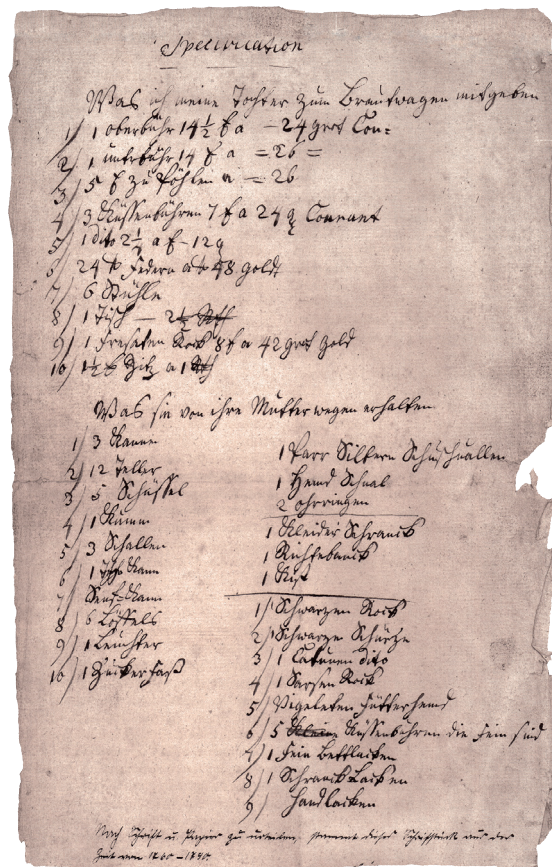 Specification
Was ich meine Tochter zum Brautwagen mitgeben
1/ 1 oberbühr 14½ a — 24 grot Cou=
2/ 1 unterbühr 14 a = 26 =
3/ 5 zu Pöhlen a — 26
4/ 3 Küssenbühren 7 a 24 g Courant
5/ 1 dito 2½ a — 12 g
6/ 24 Federn a 48 gold
7/ 6 Stühle
8/ 1 Tisch — 2½
9/ 1 Fresaten Rock 8 a 42 grot gold
10/ 1½ Zitz a 1
Was sie von ihre Mutter wegen erhalten
1/ 3 Kannen
2/ 12 Teller
3/ 5 Schüssel
4/ 1 Kumm
5/ 3 Schallen
6/ 1 Kann
7/ Senf=Kann
8/ 6 Löffels
9/ 1 Leuchter
10/ 1 Zuckerfaß
1 Parr Silfern Schuschnallen
1 Hemd Schnal
2 ohrringen
1 Kleider Schranck
1 Richtebanck
1 Kist
1/ 1 Schwarzen Rock
2/ 1 Schwarze Schürze
3/ 1 Catunen dito
4/ 1 Sarsen Rock
5/ Vigeleten Futterhemd
6/ 5 Kleine Küssenbühren die fein sind
7/ 1 Fein Bettlacken
8/ 1 Schranck Lacken
9/ Handlacken
Nach Schrift u. Papier zu urteilen, stammt dieses Schriftstück aus der
Zeit von 1760–1790